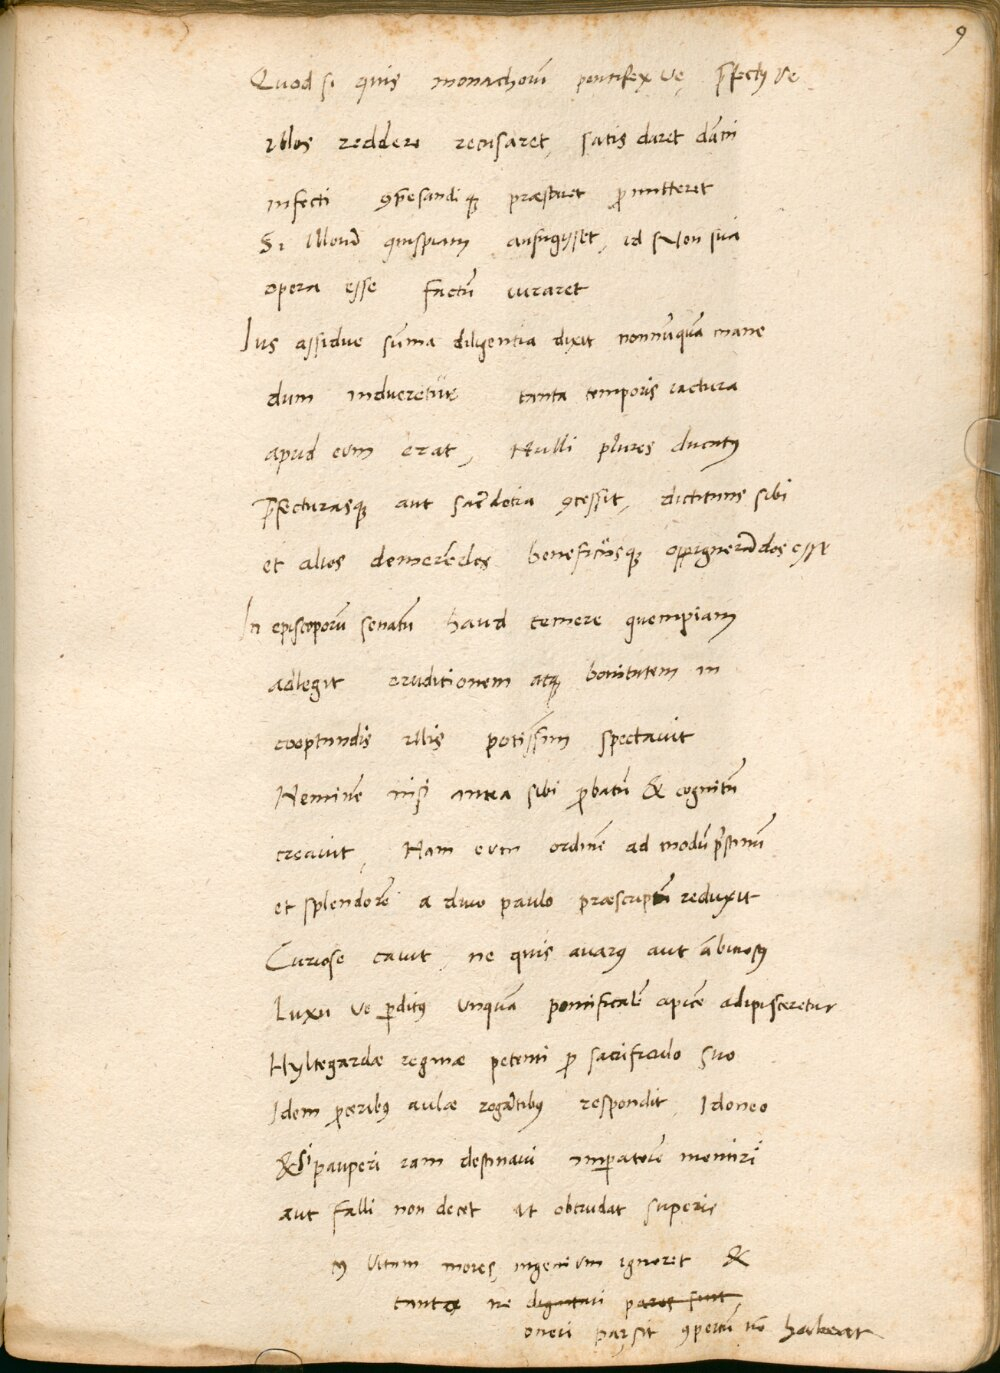 9
Quod si quis monachorũ pontifex ve p̃fectꝯ ve
illos reddere recusaret, satis daret dãni
infecti ꝯpẽsandi qꝫ præstaret promitteret
Si illorũ quispiam aufugisset, id Non sua
opera esse factũ curaret
Ius assidue sũma diligentia dixit nonnũquã mane
dum indueretur tanta temporis iactura
apud eum erat, Nulli plures ducatꝯ
p̃fecturasqꝫ aut sac̃dotia ꝯcessit, dictitans sibi
et alios demerẽdos beneficiisqꝫ oppignerãdos esse
In episcoporũ senatũ haud temere quempiam
adlegit eruditionem atqꝫ bonitatem in
cooptandis illis potissim̃ spectavit
Neminẽ nisi antea sibi probatũ & cognitũ
creavit, Nam eum ordinẽ ad modũ pristinũ
et splendorẽ a divo paulo præscriptũ reduxit
Curiose cavit, ne quis avarꝯ aut ãbitiosꝯ
Luxu ve perditꝯ unquã pontificalẽ apicẽ adipisceretur
Hyltegardæ reginæ petenti pro sacrificulo suo
Idem proceribꝯ aulæ rogãtibꝯ respondit, Idoneo
& si pauperi iam destinavi imperatorẽ mentiri
aut falli non decet ut obtrudat superis
cꝯ vitam mores, ingenium ignoret &
tanto ne
oneri par sit ꝯpertũ nõ habeat